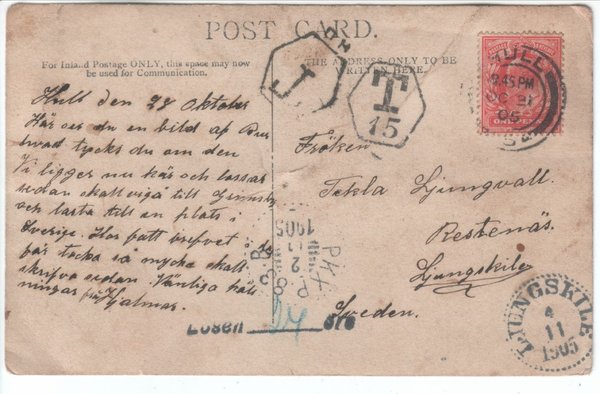 POST CARD.
For Inland Postage ONLY, this space may now
be used for Communication.
THE ADDRESS ONLY TO BE
WRITTEN HERE.
T
T
15
HULL
9.45 PM
OC 31
05
Hull den 28 Oktober
Här ser du en bild af
hvad tycks du om den
Vi ligger nu här och lossar
sedan skall vi gå till
och lasta till en plats i
Sverige. Har fått brefvet i
får tacka så mycke skall
skrifva sedan. Vänliga häls
ningar från Hjalmar.
Fröken
Tekla Ljungvall.
Restenäs
Ljungskile
Sweden.
PKXP
1905
11
2
83 B
Lösen 24 öre
LJUNGSKILE
4
11
1905